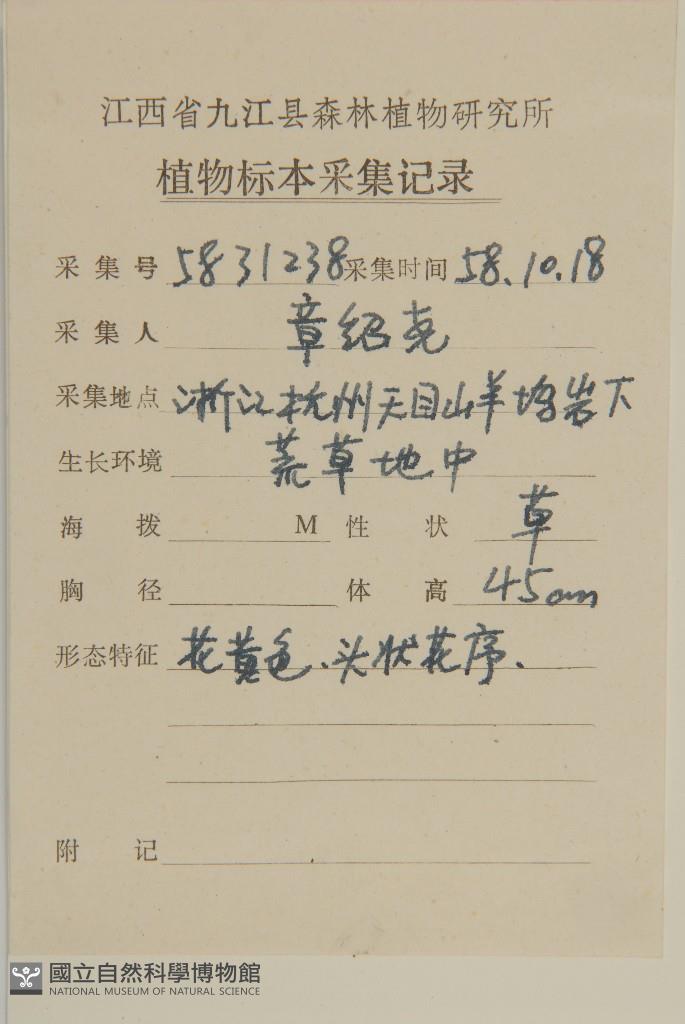 江西省九江县森林植物研究所
植物标本采集记录
采集号 5831238 采集时间 58.10.18
采集人 章绍尧
采集地点 浙江杭州天目山羊坞岩下
生长环境 荒草地中
海拨 M 性状 草
胸径 体高 45cm
形态特征 花黄色、头状花序.
附记
國立自然科學博物館
NATIONAL MUSEUM OF NATURAL SCIENCE